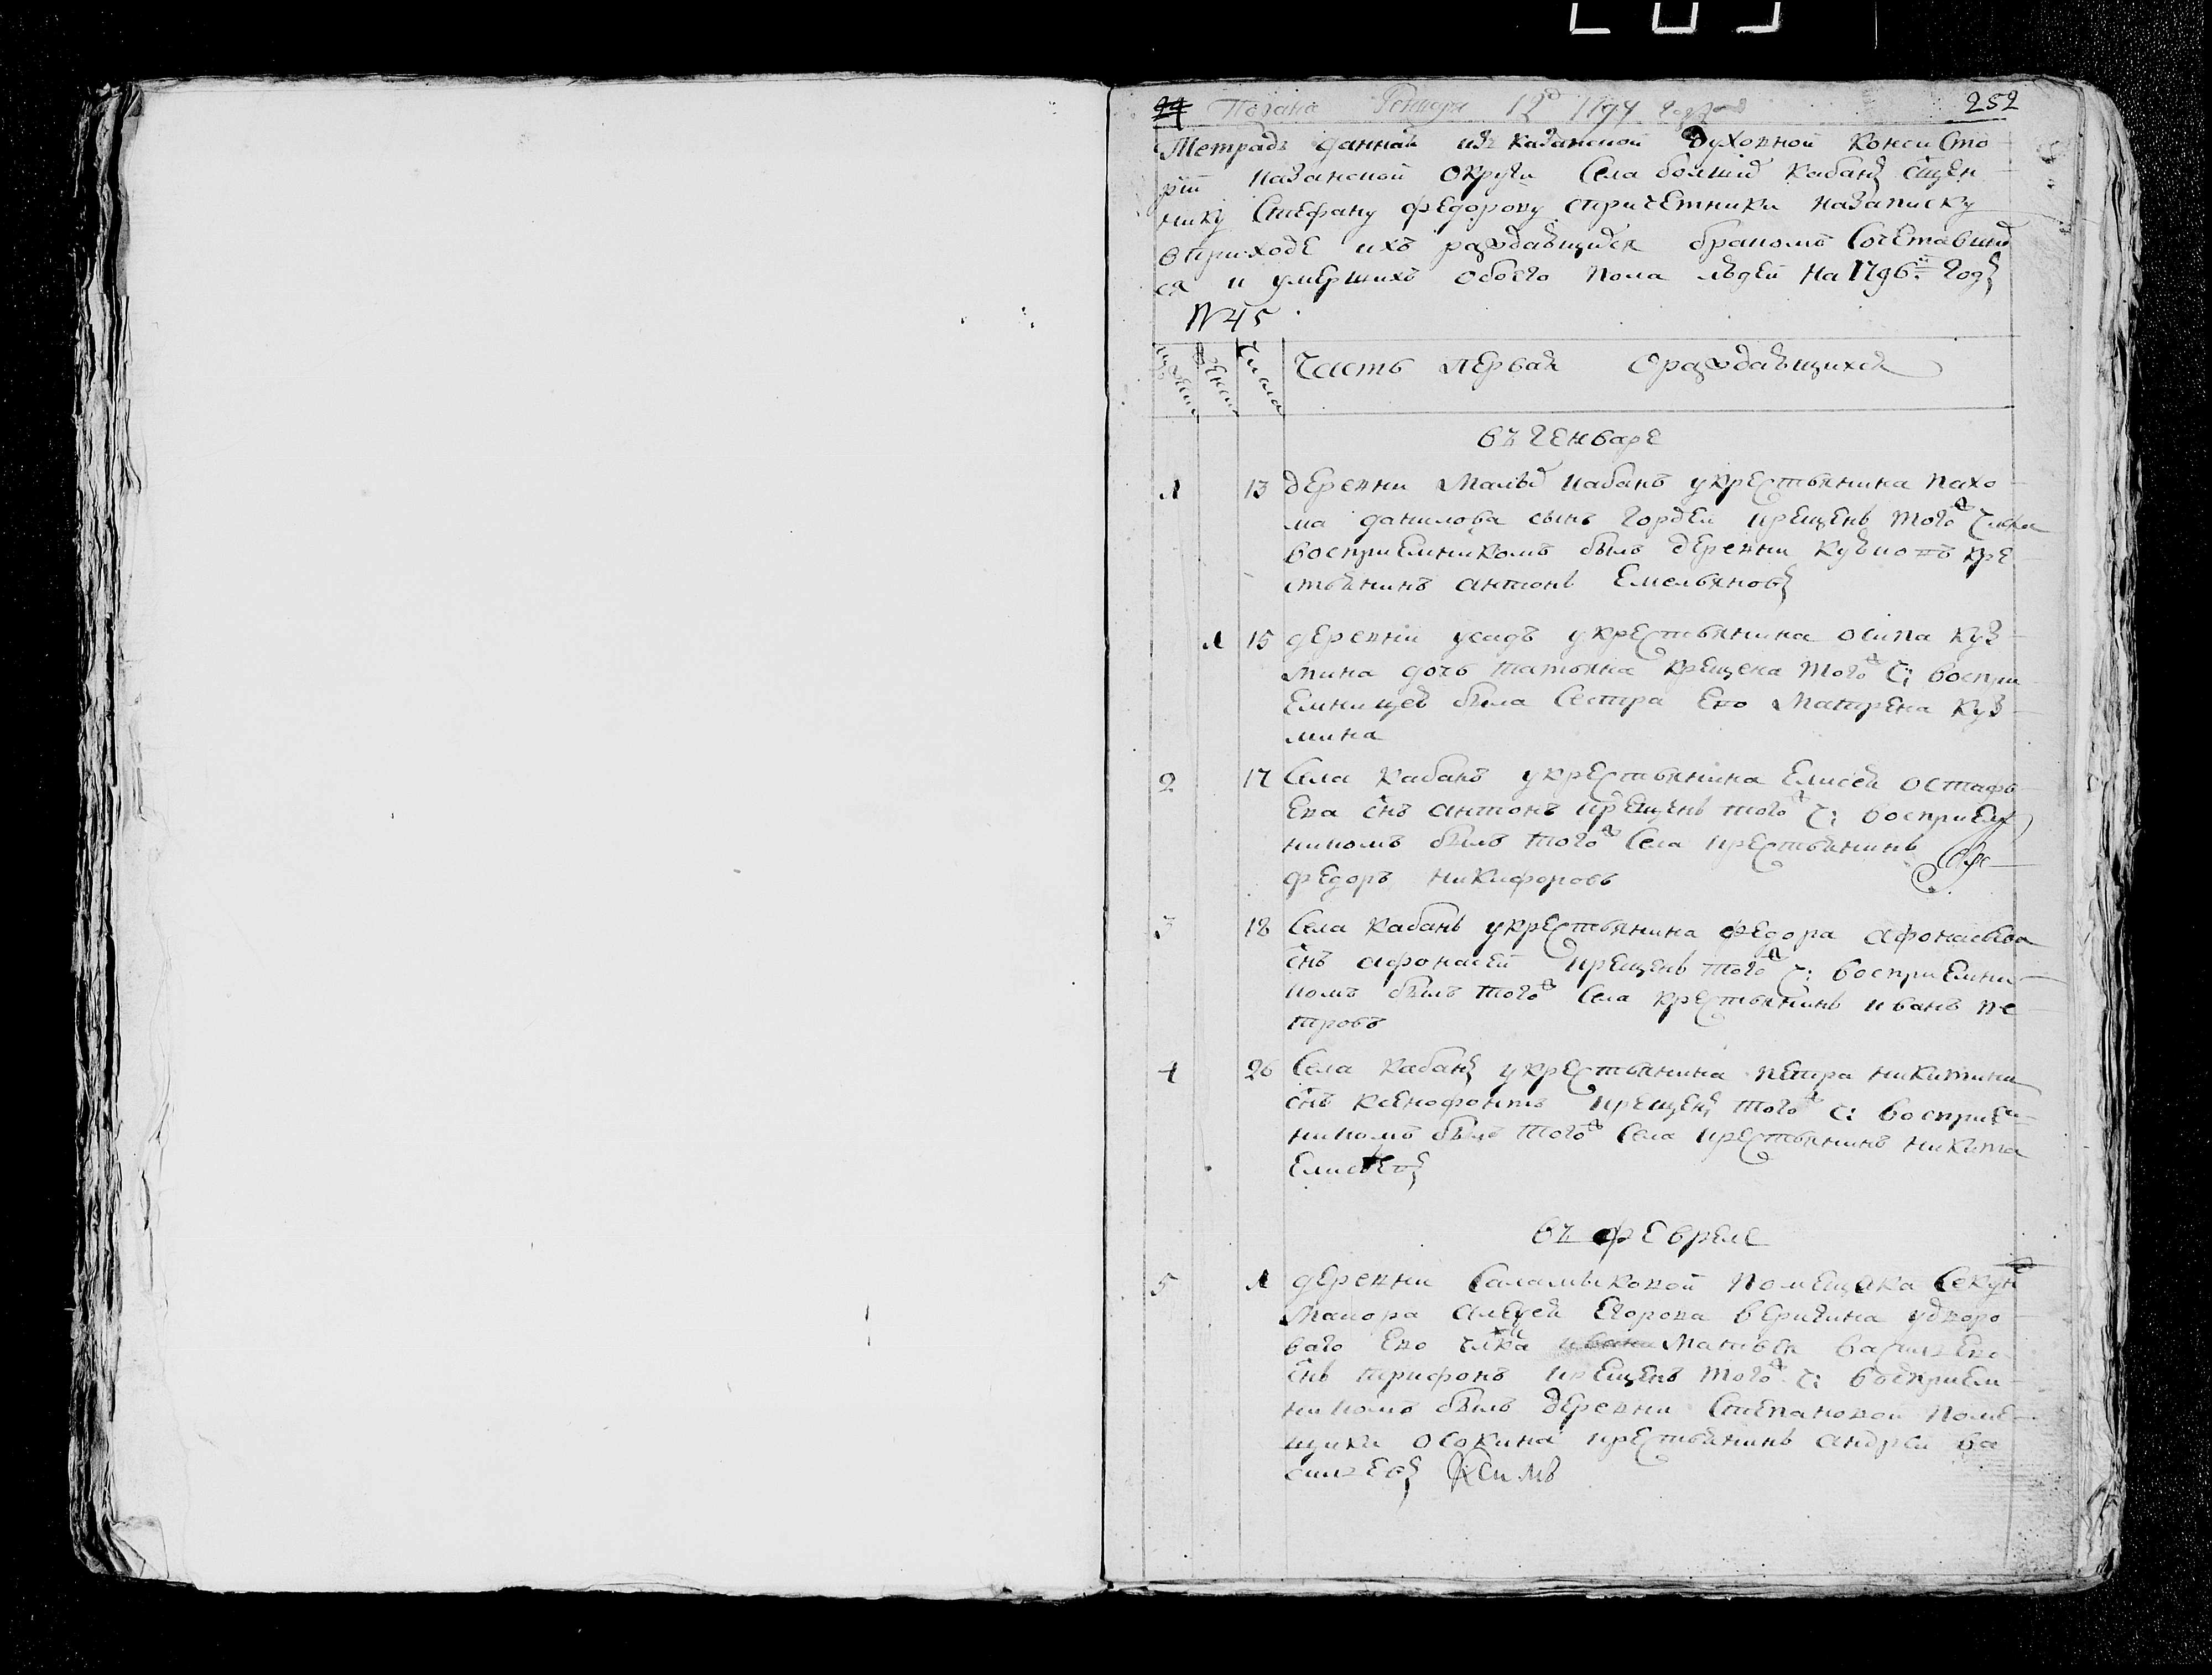 252
Подана Генваря 12д 1797 года
Тетрадь данная изъ казанской духовной консисто
рїи казанской округи села болшид кабанъ сщен
нику Стефану федорову спричетники назаписку
вприходе ихъ раждавщихся бракомъ сочетавших
ся и умершихъ обоего пола людей на 1796й годъ
№ 45
числа
часть первая ораждавщихся
въ генваре
1 13 деревни малыд кабанъ укрестьянина пахо
ма данилова сынъ гордеи крещенъ того ж числа
восприемникомъ былъ деревни кре
стьянинъ антонъ емельяновъ
1 15 деревни усадъ укрестьянина осипа куз
мина дочь татьяна крещена того ж ч: воспри
емницею была сестра ево матрена куз
мина
2 17 села кабанъ укрестьянина елисея остафь
ева снъ антонъ крещенъ того ж ч: восприем
никомъ былъ того ж села крестьянинъ
федоръ никифоровъ
3 18 села кабанъ укрестьянина федора афонасьева
снъ афонасей крещенъ того ж ч: восприемни
комъ былъ того ж села крестьянинъ иванъ пе
тровъ
4 26 села кабанъ укрестьянина петра никитина
снъ ксенофонтъ крещенъ того ж ч: восприем
никомъ былъ того ж села крестьянинъ никита
елисеевъ
въ феврале
5 1 деревни саламыковой помещика секун
маиора алексея егорова веригина удворо
ваго ево члка матвея василева
снъ трифонъ крещенъ того ж ч: восприем
никомъ былъ деревни степановой поме
щика осокина крестьянинъ андрей ва
силевъ